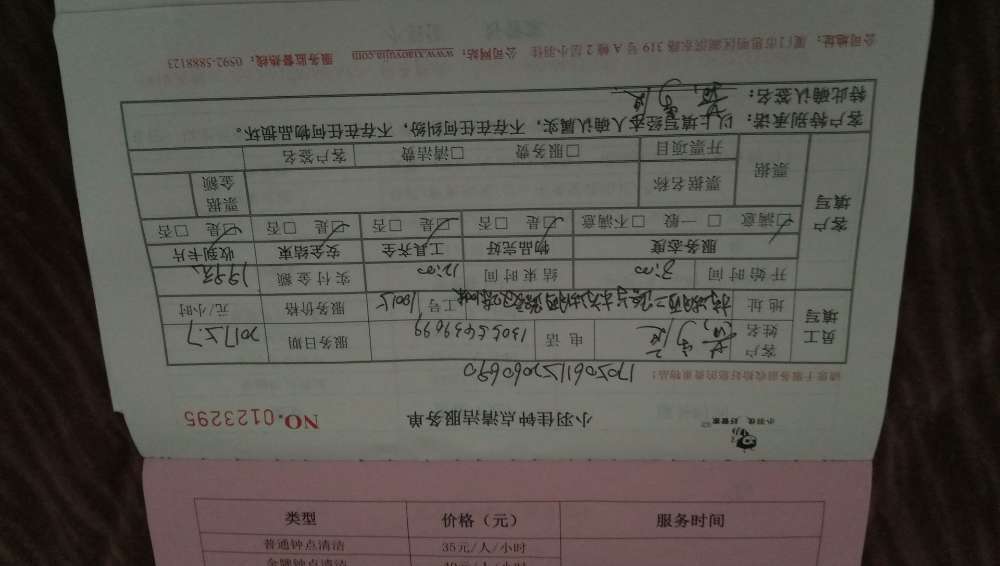 小羽佳 好管家
小羽佳钟点清洁服务单 NO.0123295
请您于服务前收检好您的贵重物品!
员工填写
客户姓名 电话 13055439699 服务日期 2017.5.7
地址 工号 服务价格 元/小时
开始时间 8:00 结束时间 12:00 实付金额
客户填写
服务态度 物品完好 工具齐全 安全结束 收到卡片
☑满意 □一般 □不满意 ☑是 □否 ☑是 □否 ☑是 □否 ☑是 □否
票据 票据名称 票据金额
开票项目 □服务费 □清洁费 客户签名
客户特别承诺:以上填写经本人确认属实,不存在任何纠纷,不存在任何物品损坏。
特此确认签名:
公司地址:厦门市思明区湖滨东路 319 号 A 幢 2 层小羽佳 公司网站:www.xiaoyujia.com 服务监督热线:0592-5888123
类型 价格(元) 服务时间
普通钟点清洁 35元/人/小时
金牌钟点清洁 40元/人/小时